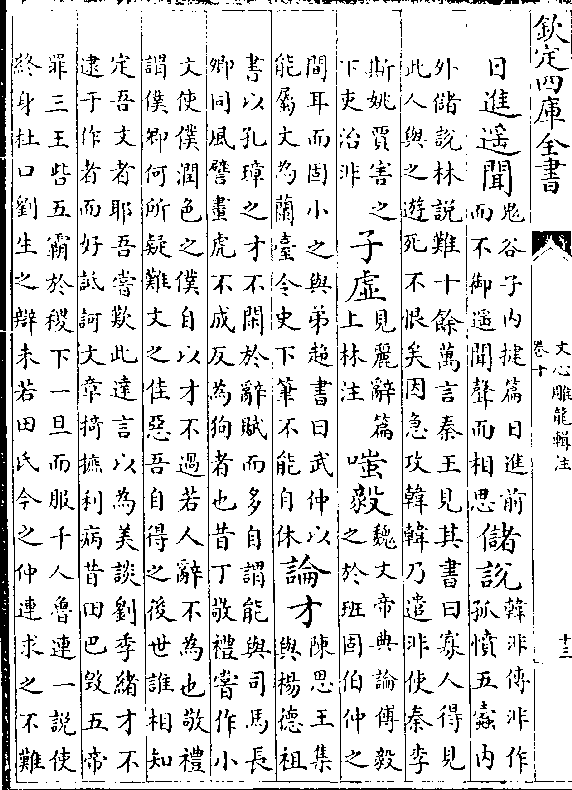 欽定四庫全書
文心雕龍輯注
卷十
十三
日進遥聞鬼谷子内揵篇日進前而不御遥聞聲而相思儲說韓非傳非作孤憤五蠹内
外儲說林說難十餘萬言秦王見其書曰寡人得見此人與之遊死不恨矣因急攻韓韓乃遣非使秦李
斯姚賈害之下吏治非子虛見麗辭篇上林注嗤毅魏文帝典論傅毅之於班固伯仲之
間耳而固小之與弟超書曰武仲以能屬文為蘭臺令史下筆不能自休論才陳思王集與楊德祖
書以孔璋之才不閑於辭賦而多自謂能與司馬長卿同風譬畫虎不成反為狗者也昔丁敬禮嘗作小
文使僕潤色之僕自以才不過若人辭不為也敬禮謂僕卿何所疑難文之佳惡吾自得之後世誰相知
定吾文者耶吾嘗歎此達言以為美談劉季緒才不逮于作者而好詆訶文章掎摭利病昔田巴毀五帝
罪三王呰五霸於稷下一旦而服千人魯連一說使終身杜口劉生之辯未若田氏今之仲連求之不難